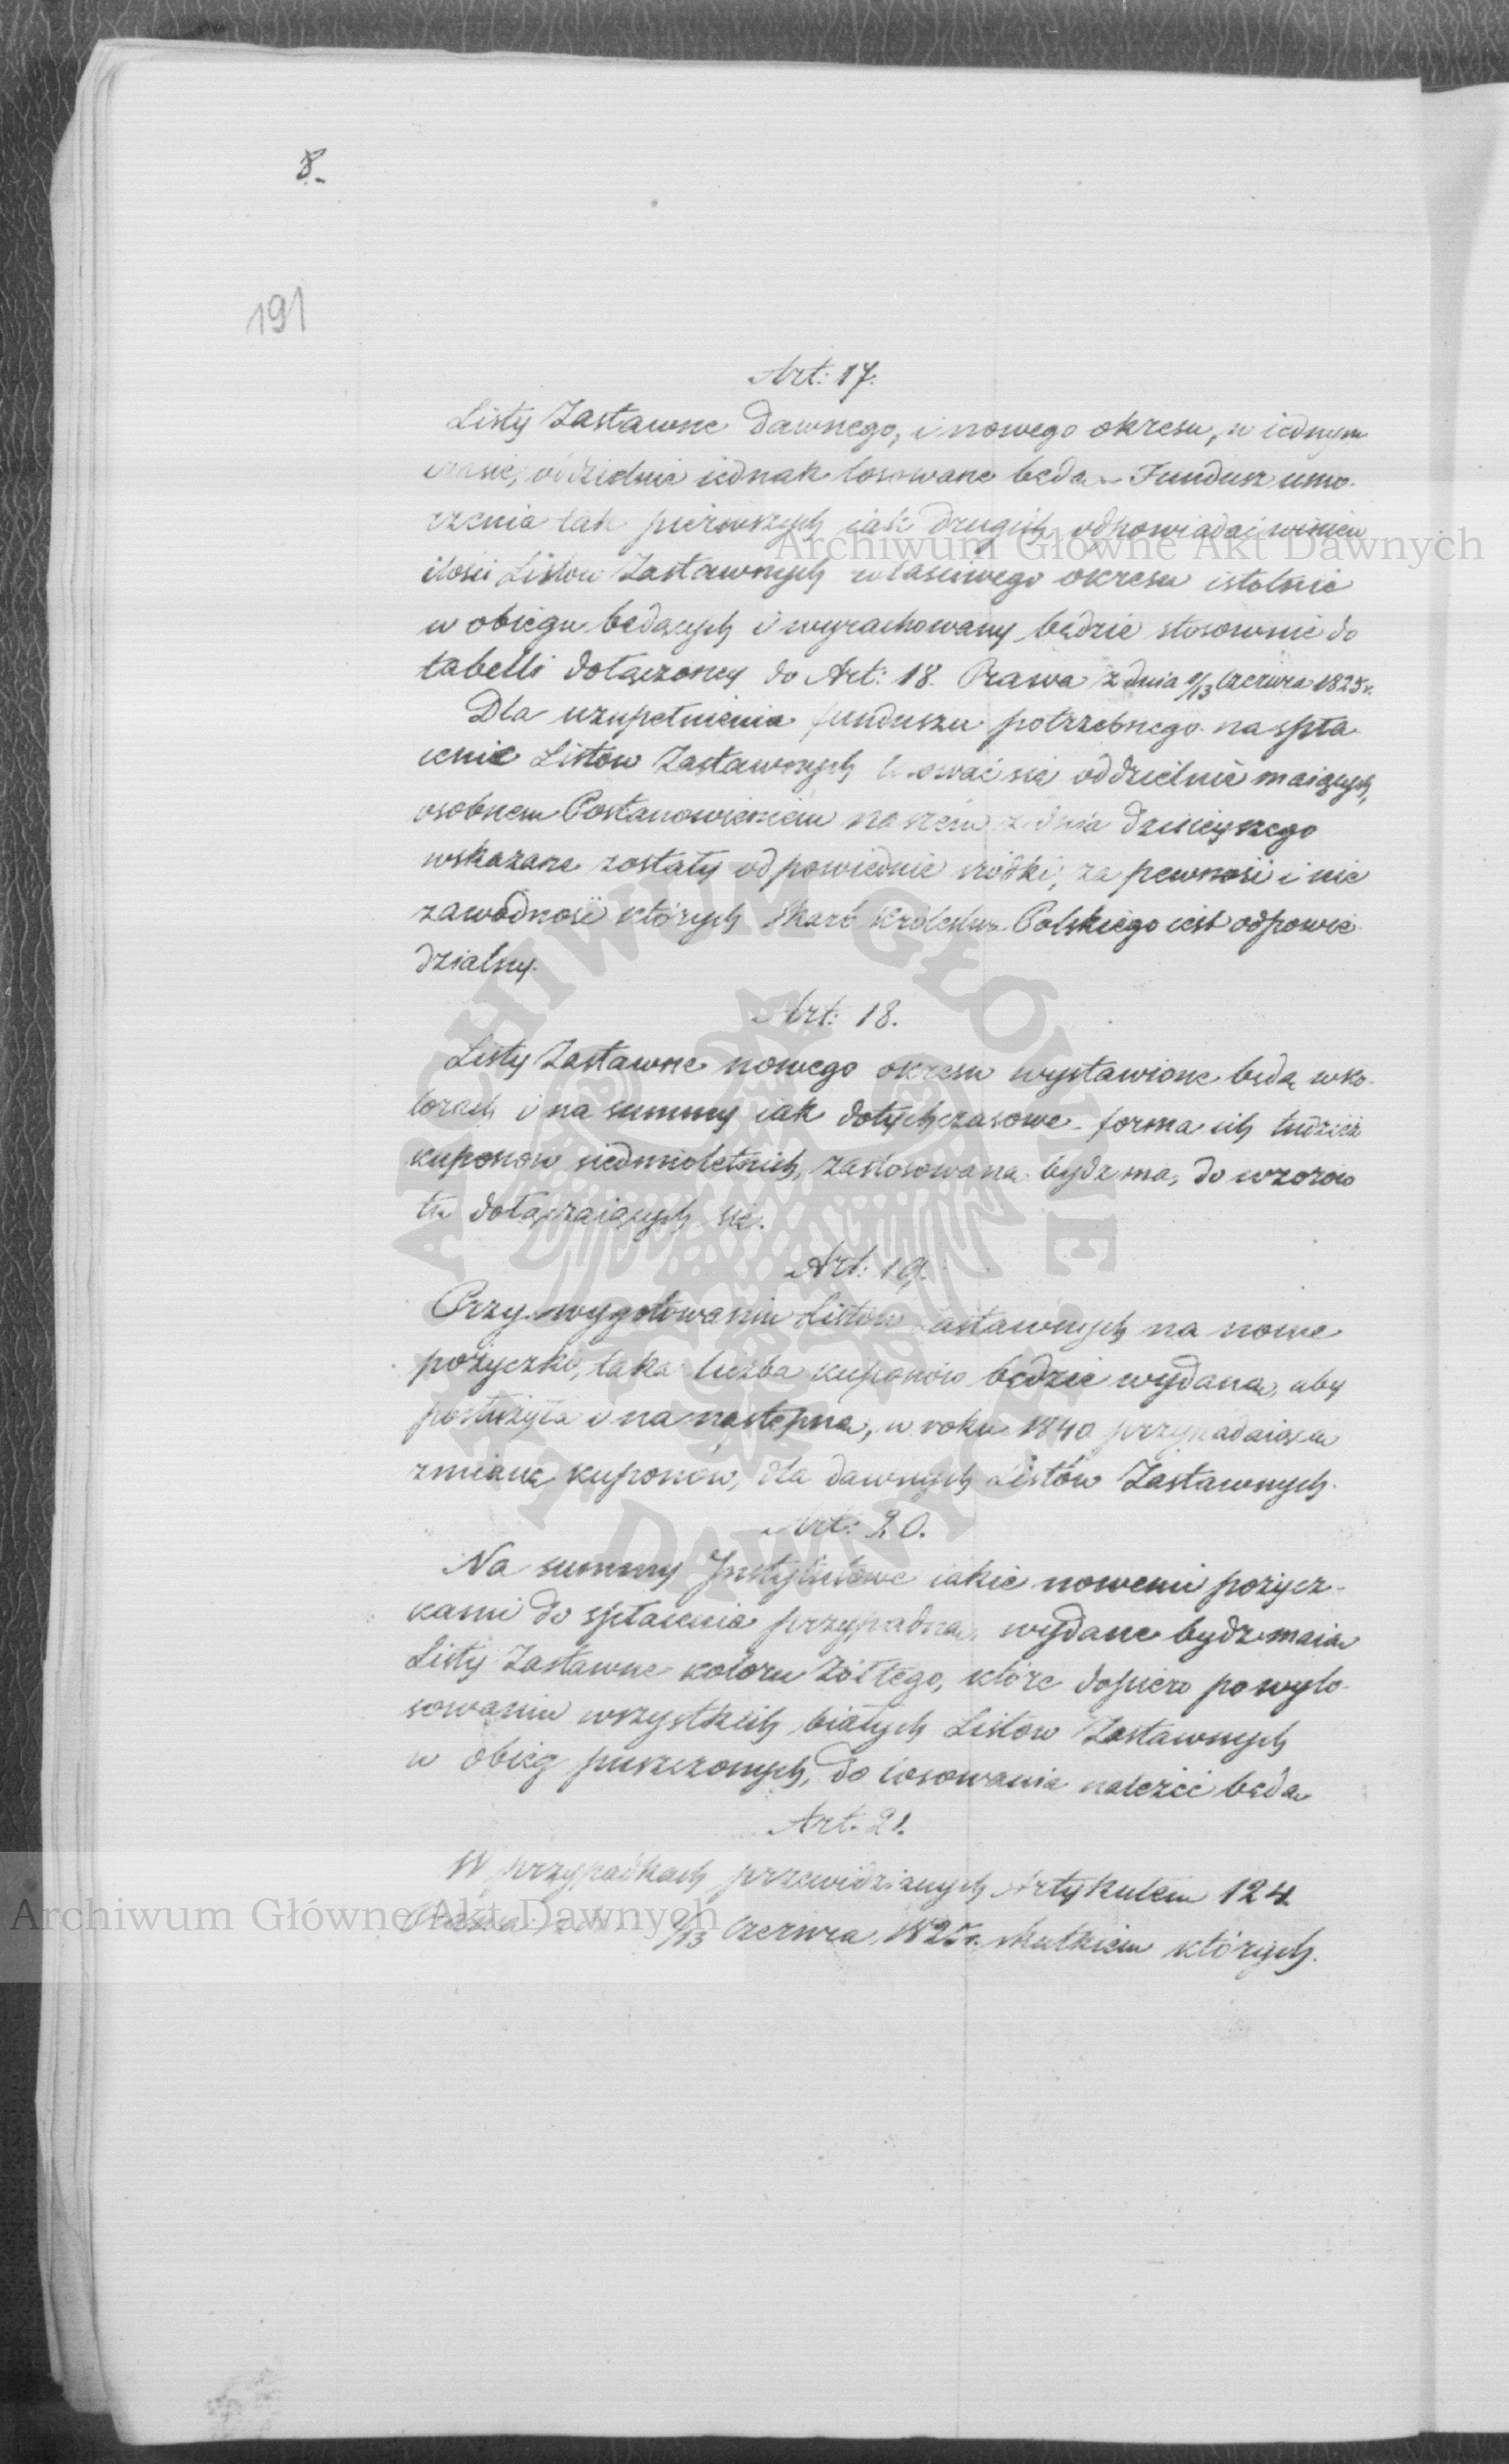 8.
191
Art: 17.
Listy Zastawne dawnego, i nowego okresu, w iednym
czasie, oddzielnie iednak losowane będą - Fundusz umo-
rzenia tak pierwszych iak drugich odpowiadać winien
ilości Listów Zastawnych właściwego okresu istotnie
w obiegu będących i wyrachowany będzie stosownie do
tabelli dołączoney do Art: 18. Prawa z dnia 1/13 Czerwca 1825 r.
Dla uzupełnienia funduszu potrzebnego na spła-
cenie Listów Zastawnych losować się oddzielnie maiących,
osobnem Postanowieniem naszém z dnia dzisieyszego
wskazane zostały odpowiednie srodki, za pewność i nie
zawodność których Skarb Królestwa Polskiego iest odpowie-
dzialny.
Art: 18.
Listy Zastawne nowego okresu wystawione będą w ko-
lorach i na summy iak dotychczasowe - forma ich tudzież
kuponów siedmioletnich, zastosowana bydź ma, do wzorów
tu dołączaiących się.
Art: 19.
Przy wygotowaniu Listów Zastawnych na nowe
pożyczki, taka liczba kuponów będzie wydana, aby
posłużyła i na następną, w roku 1840 przypadaiącą
zmianę kuponów, dla dawnych Listów Zastawnych.
Art: 20.
Na summy Instytutowe iakie nowemi pożycz-
kami do spłacenia przypadną, wydane bydź maią
Listy Zastawne koloru żółtego, które dopiero po wylo-
sowaniu wszystkich białych Listów Zastawnych
w obieg puszczonych, do losowania należéć będą
Art. 21.
W przypadkach przewidzianych Artykułem 124
Prawa 1/13 Czerwca 1825 r. skutkiem których
Archiwum Główne Akt Dawnych
Archiwum Główne Akt Dawnych
ARCHIWUM GŁÓWNE AKT DAWNYCH